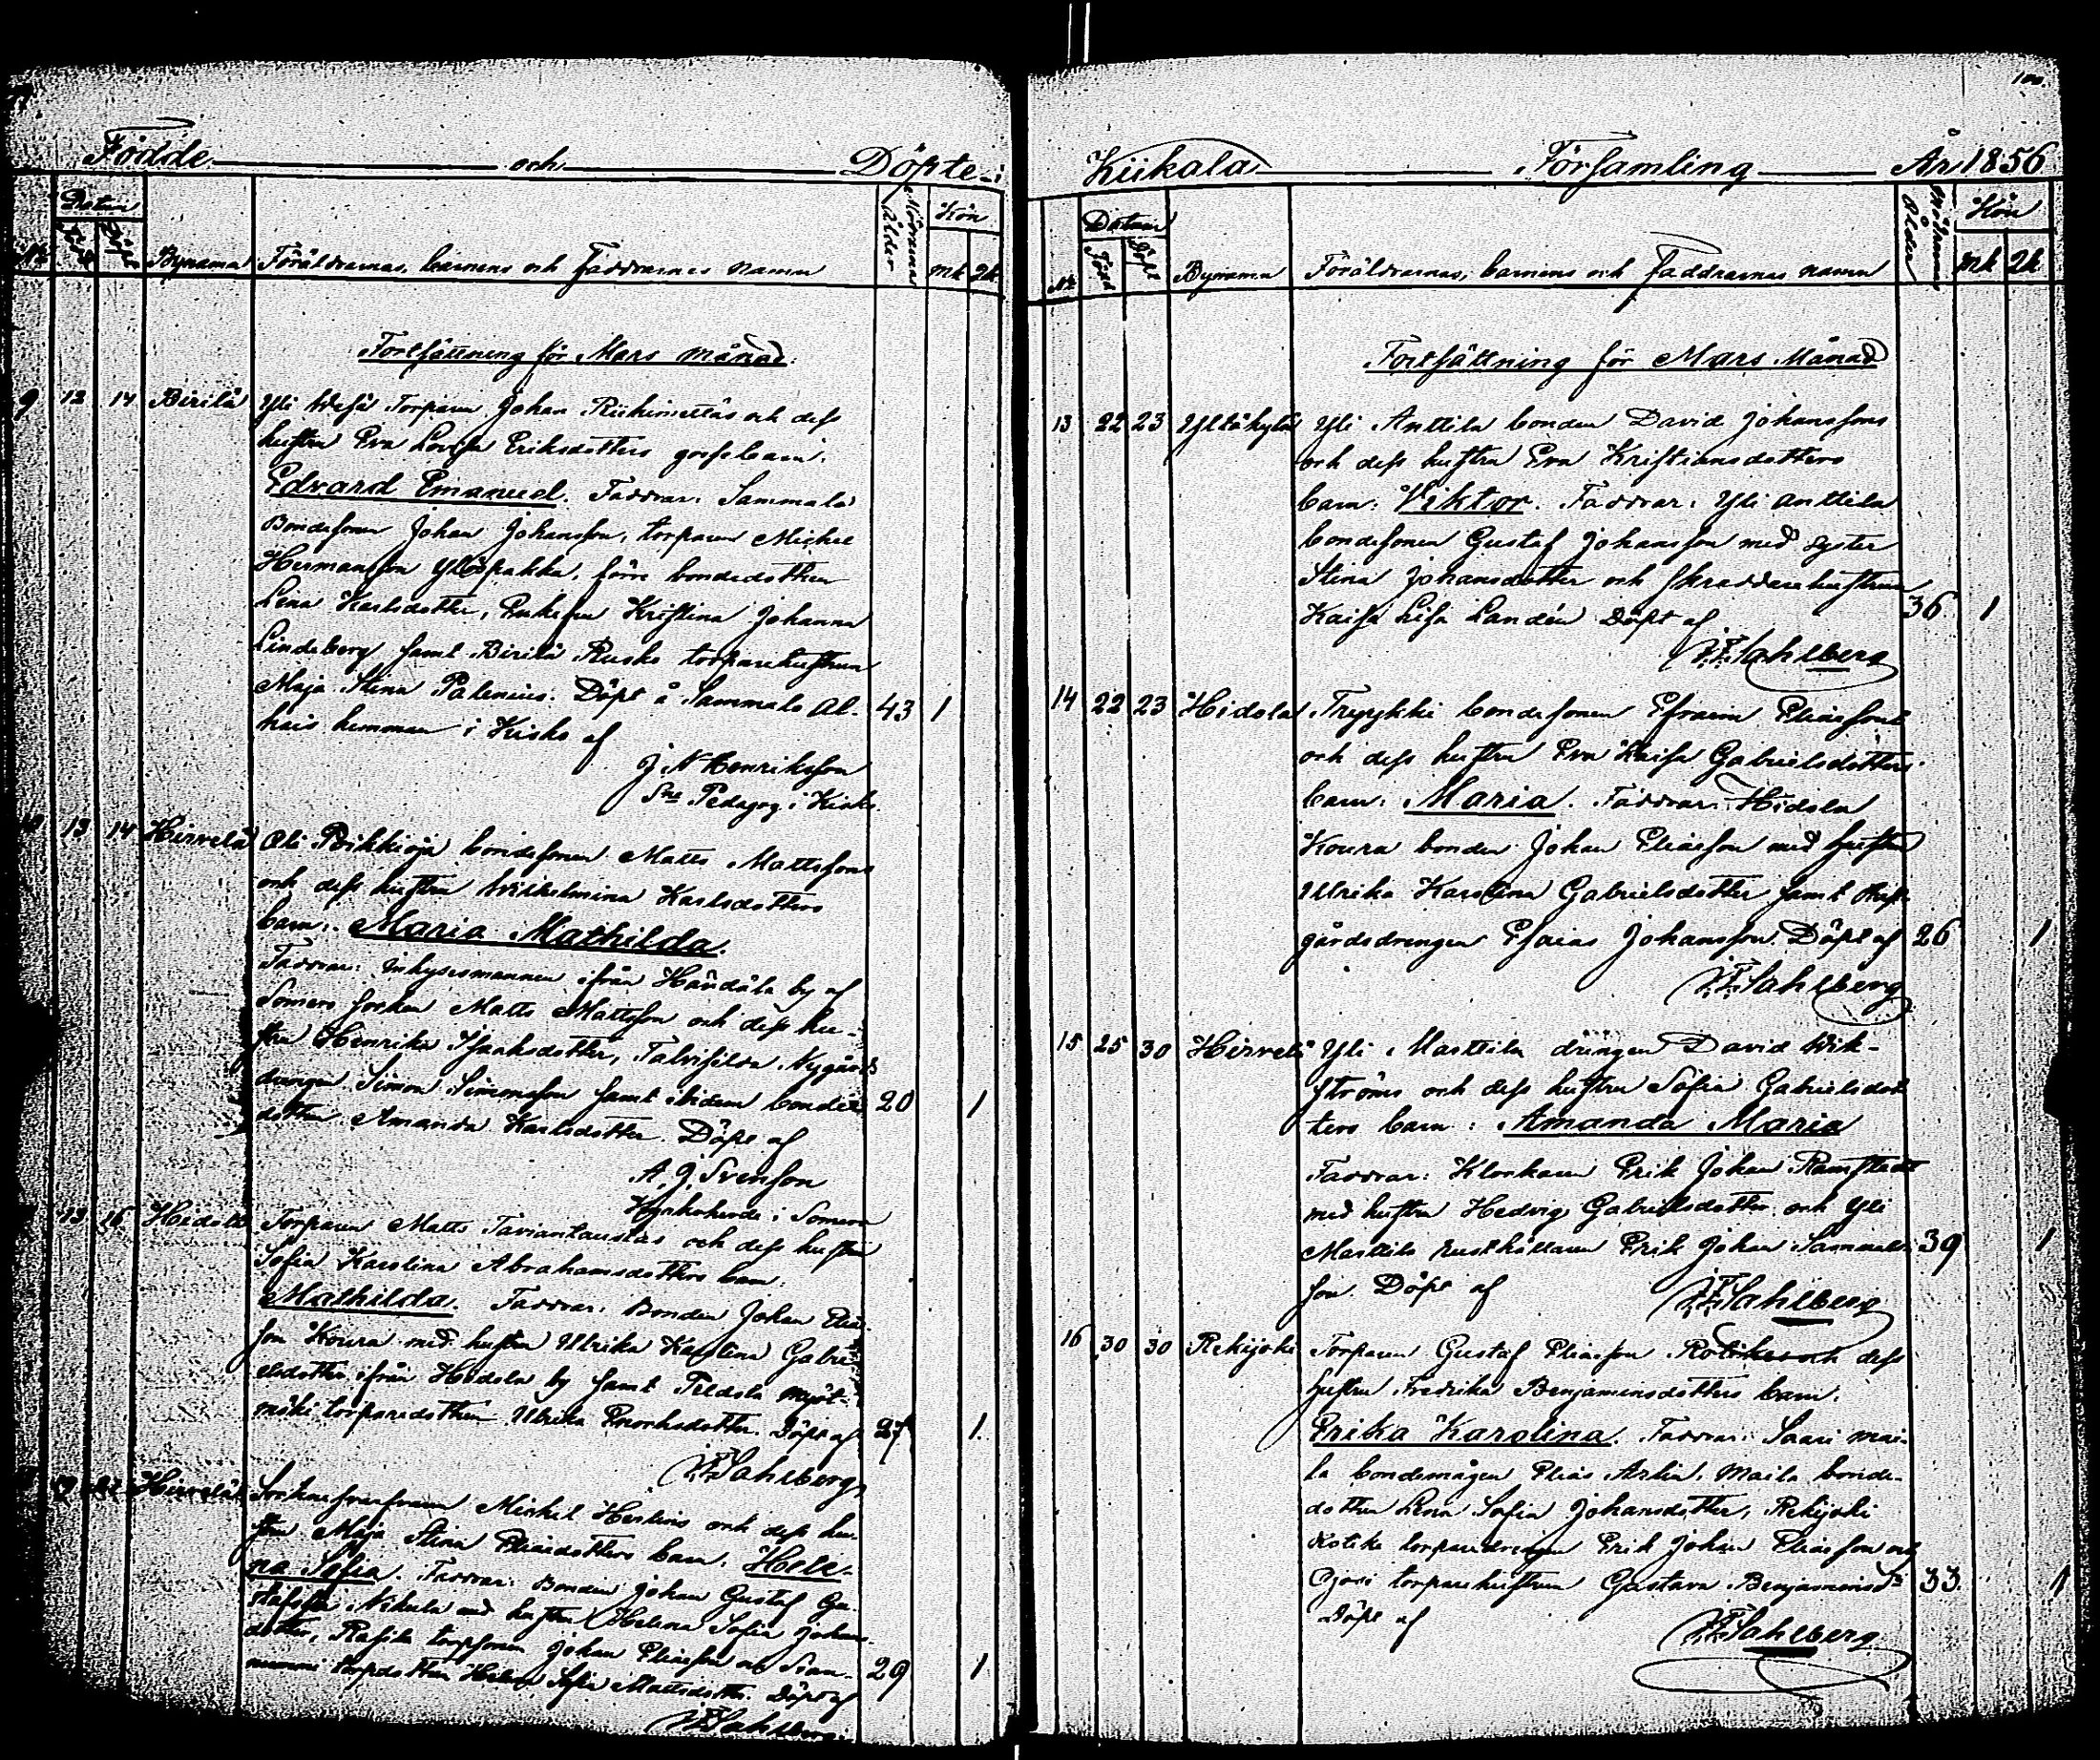 100.
Födde och Döpte i
Datum
Mödrarnas ålder
Kön
No Född Döpt Bynamn Föräldrarnas, barnens och Faddrarnes namn mk qk.
Fortsättning för Mars månad.
9 12 14 Pirilä Yli Torparen Johan Riihimettäs och dess
hustru Eva Lovisa Eriksdotters gossebarn:
Edvard Emanuel. Faddrar: Sammalo
Bondesonen Johan Johansson, torparen Mickel
Hermansson Ylöspakka, förre bondedottren
Lena Karlsdotter, Enkefru Kristina Johanna
Lindeberg samt Pirilä Rusko torparehustrun
Maja Stina Palenius. Döpt å Sammalo Al- 43 1
hais hemman i Kisko af
J. N Henriksson
Pedagog i Kisko.
10 13 14 Hirvelä Ali Pikkioja bondesonen Matts Mattssons
och dess hustru Wilhelmina Karlsdotters
barn: Maria Mathilda.
Faddrar: Inhysesmannen ifrån Händälä by af
Somero socken Matts Mattsson och dess hu-
stru Henrika Isaksdotter, Talvisilda Nygårds
drängen Simon Simonsson samt ibidem bonde- 20 1
dottren Amanda Karlsdotter. Döpt af
A. J. Svenson
Kyrkoherde i Somero
13 16 Hidola Torparen Matts Taviantaustas och dess hustru
Sofia Karolina Abrahamsdotters barn:
Mathilda. Faddrar: Bonden Johan Elia-
son Koura med hustru Ulrika Karolina Gabri-
elsdotter ifrån Hidola by samt Teldola
mäki torparedottren Ulrika Enochsdotter. Döpt af 27 1.
Sahlberg
Hirvelä Mickel och dess hu-
stru Maja Stina Eliaedotters barn: Hele-
na Sofia. Faddrar: Bonden Johan Gustaf Gu-
stafsson Nikula med hustru Helena Sofia Johans-
dotter, torpsonen Johan Eliasson och
torpdottren Helena Sofia Mattsdotter. Döpt af 29 1
Sahlberg
Kiikala Församling År 1856
Datum
Mödrarnas ålder
Kön
No Född Döpt Bynamn Föräldrarnas, barnens och Faddrarnas namn mk qk
Fortsättning för Mars Månad
13 22 23 Yltäkylä Yli Anttila bonden David Johanssons
och dess hustru Eva Kristiansdotters
barn: Viktor. Faddrar: Yli Anttila
bondesonen Gustaf Johansson med syster
Stina Johansdotter och skraddarehustrun
Kaisa Lisa Landén Döpt af 36 1
Sahlberg
14 22 23 Hidola Tryykki bondesonen Efraim Eliassons
och dess hustru Eva Kaisa Gabrielsdotters
barn: Maria. Faddrar: Hidola
Koura bonden Johan Eliasson med hustru
Ulrika Karolina Gabrielsdotter samt
gårdsdrengen Esaias Johansson. Döpt af 26 1
Sahlberg
15 25 30 Hirvelä Yli Masttila drängen David Wik-
ströms och dess hustru Sofia Gabrielsdot
ters barn: Amanda Maria
Faddrar: Klockaren Erik Johan Ramstedt
med hustru Hedvig Gabrielsdotter och Yli
Masttila rusthållaren Erik Johan 39 1
son Döpt af Sahlberg
16 30 30 Rekijoki Torparen Gustaf Eliasson Kotikes och dess
hustru Fredrika Benjaminsdotters barn:
Erika Karolina. Faddrar: Saari mai-
la bondemågen Elias Arlin, Maila bonde-
dottren Lena Sofia Johansdotter, Rekijoki
Kotike torparedrengen Erik Johan Eliasson och
Ojasi torparehustrun Gustava Benjaminsdr 33. 1
Döpt af
Sahlberg